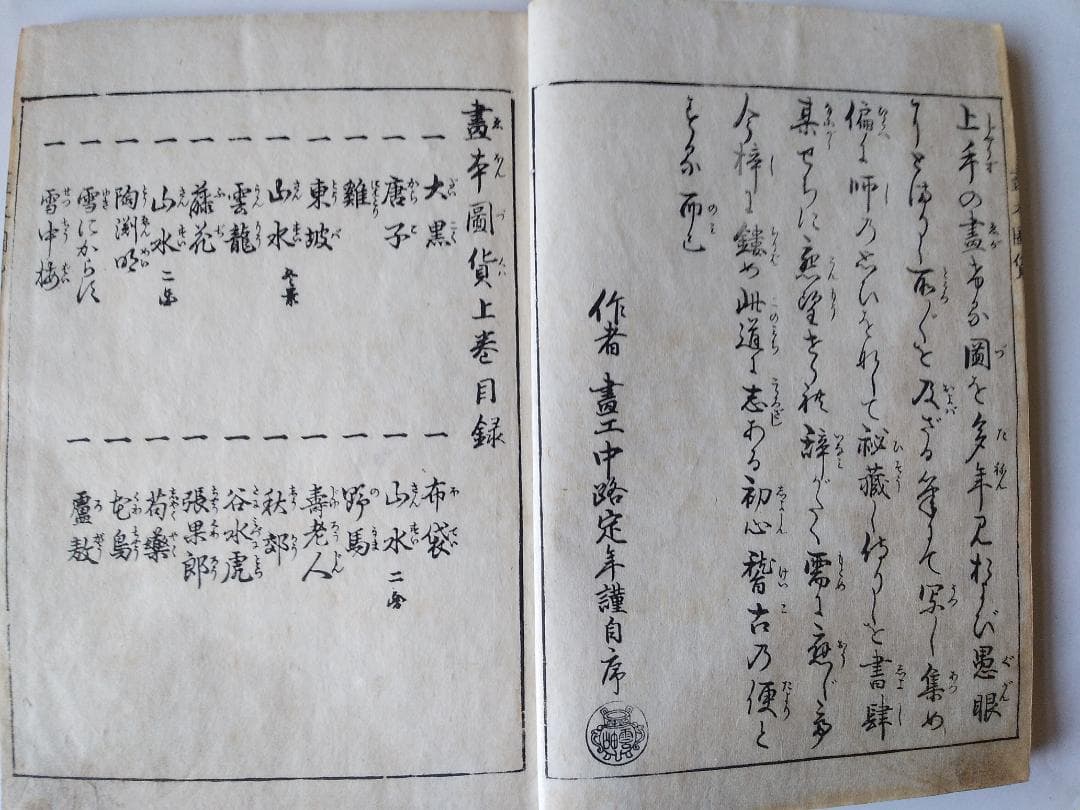 上手の畫者な圖を多年見および愚眼
にとまりし所〴〵を及ざる筆にて写し集め
偏に師の思ひをなして祕藏し侍りしを書肆
某せちに懇望す
辞がたく需に應じ
今梓に鏤め此道に志ある初心稽古乃便と
する而已
作者 畫工中路定年謹自序
畫本圖貨上巻目録
一 大黒
一 唐子
一 雞
一 東坡
一 山水
一 雲龍
一 藤花
一 山水 二
一 陶渕明
一 雪にからす
一 雪中梅
一 布袋
一 山水 二
一 野馬
一 壽老人
一 秋郊
一 谷水虎
一 張果郎
一 芍藥
一 花鳥
一 盧敖